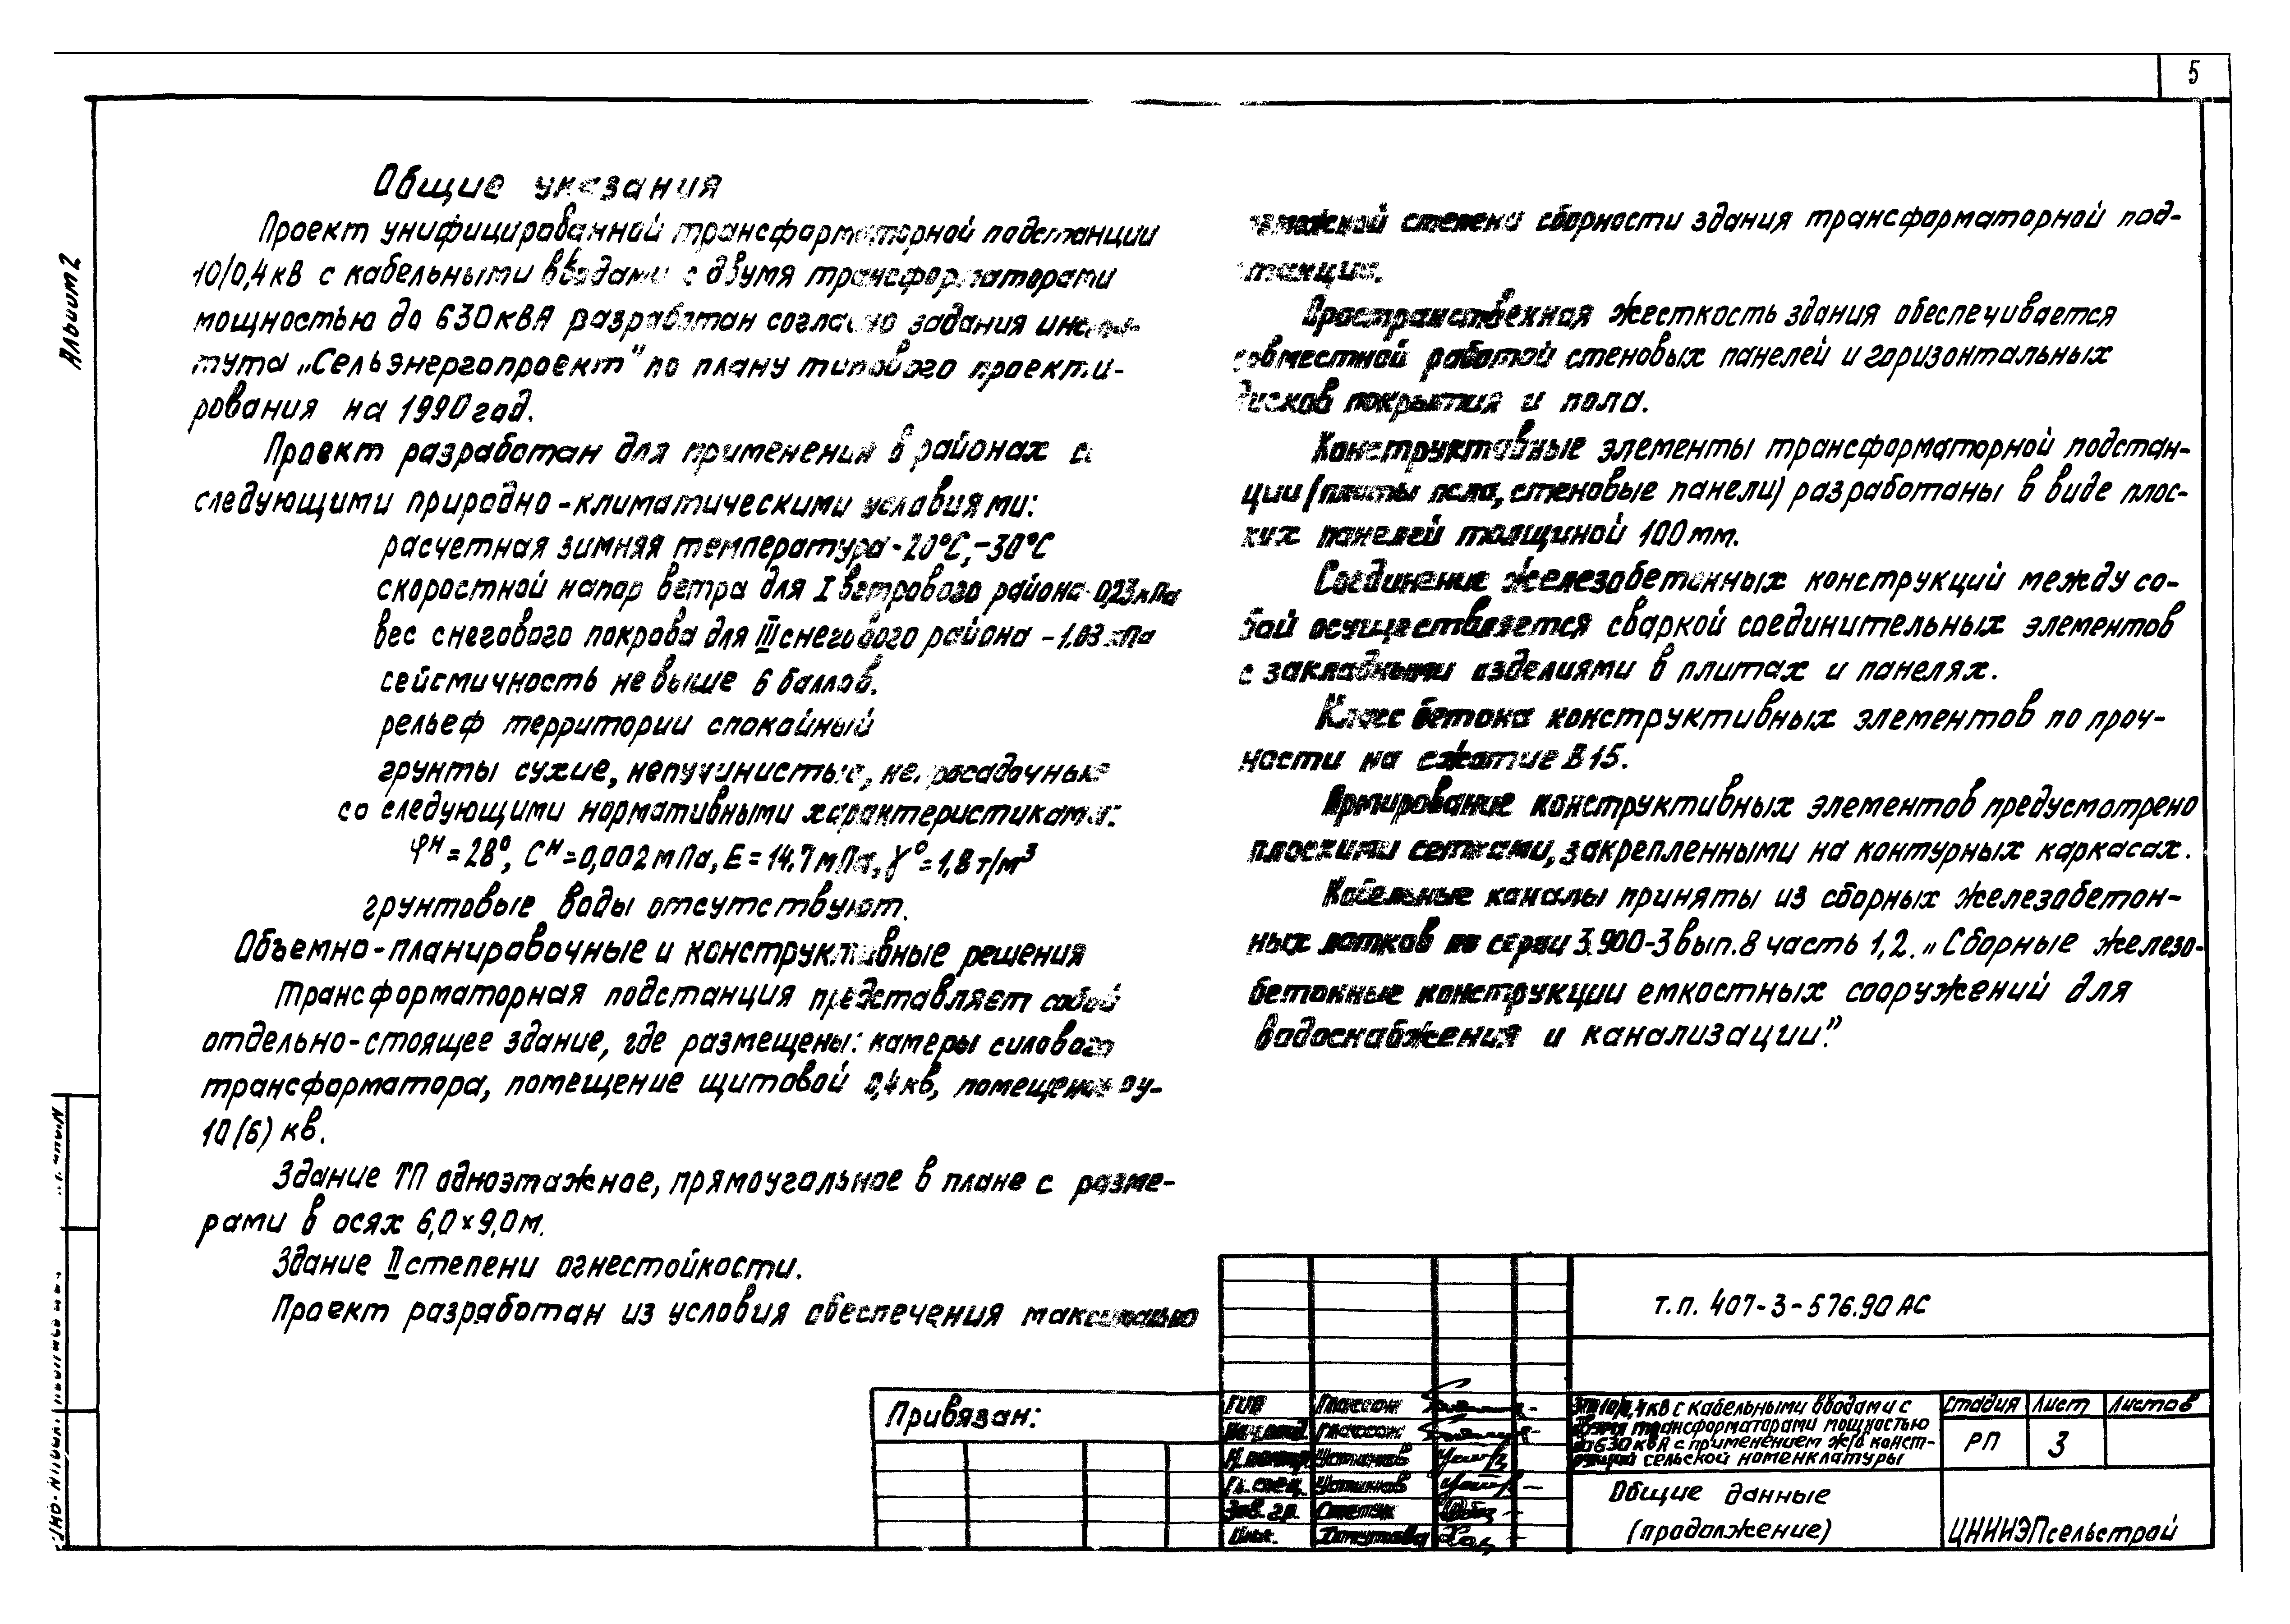 5
Альбом 2
Общие указания
Проект унифицированной трансформаторной подстанции
10/0,4кВ с кабельными вводами с двумя трансформаторами
мощностью до 630кВА разработан согласно задания инсти-
тута „Сельэнергопроект" по плану типового проекти-
рования на 1990год.
Проект разработан для применения в районах с
следующими природно-климатическими условиями:
расчетная зимняя температура-20°С,-30°С
скоростной напор ветра для I ветрового района-0,23кПа
вес снегового покрова для III снегового района -1.03 кПа
сейсмичность не выше 6 баллов.
рельеф территории спокойный
грунты сухие, непучинистые, непросадочные
со следующими нормативными характеристиками:
φн=28°, Сн=0,002мПа, Е=14.7мПа, γ°=1,8т/м³
грунтовые воды отсутствуют.
Объемно-планировочные и конструктивные решения
Трансформаторная подстанция представляет собой
отдельно-стоящее здание, где размещены: камеры силового
трансформатора, помещение щитовой 0,4кВ, помещение РУ-
10(6) кВ.
Здание ТП одноэтажное, прямоугольное в плане с разме-
рами в осях 6,0×9,0м.
Здание II степени огнестойкости.
Проект разработан из условия обеспечения максимально
степени сборности здания трансформаторной под-
станции.
Пространственная жесткость здания обеспечивается
совместной работой стеновых панелей и горизонтальных
дисков покрытия и пола.
Конструктивные элементы трансформаторной подстан-
ции (плиты пола, стеновые панели) разработаны в виде плос-
ких панелей толщиной 100мм.
Соединение железобетонных конструкций между со-
бой осуществляется сваркой соединительных элементов
с закладными изделиями в плитах и панелях.
Класс бетона конструктивных элементов по проч-
ности на сжатие В15.
Армирование конструктивных элементов предусмотрено
плоскими сетками, закрепленными на контурных каркасах.
Кабельные каналы приняты из сборных железобетон-
ных лотков по серии 3.900-3 вып.8 часть 1,2. „Сборные железо-
бетонные конструкции емкостных сооружений для
водоснабжения и канализации".
Привязан:
т.п. 407-3-576.90 АС
ГИП
Нач.отд.
Н.контр. Устинов
Гл. спец. Устинов
Зав. гр.
Инж.
ЗТП 10/0,4 кВ с кабельными вводами с
двумя трансформаторами мощностью
до 630 кВА с применением ж/б конст-
рукций сельской номенклатуры
Стадия Лист Листов
РП 3
Общие данные
(продолжение)
ЦНИИЭПсельстрой